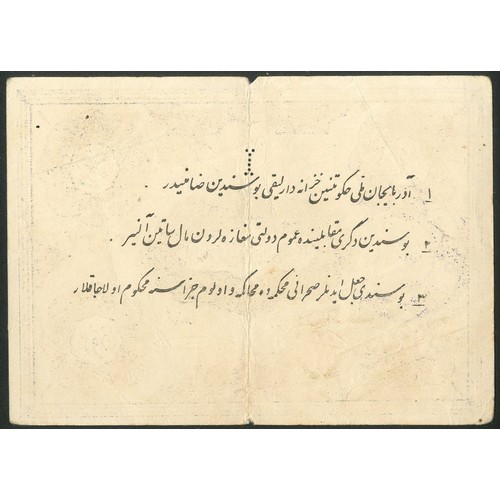 ۱ آذربایجان ملی حکومتینین خزانه دارلیقی بو سندین ضامنیدر.
۲ بو سندین دگری مقابلینده عموم دولتی مغازه لردن مال ساتین آلنیر.
۳ بو سندی جعل ایدنلر صحرائی محکمه ده محاکمه و اولوم جزاسنه محکوم اولاجاقلار